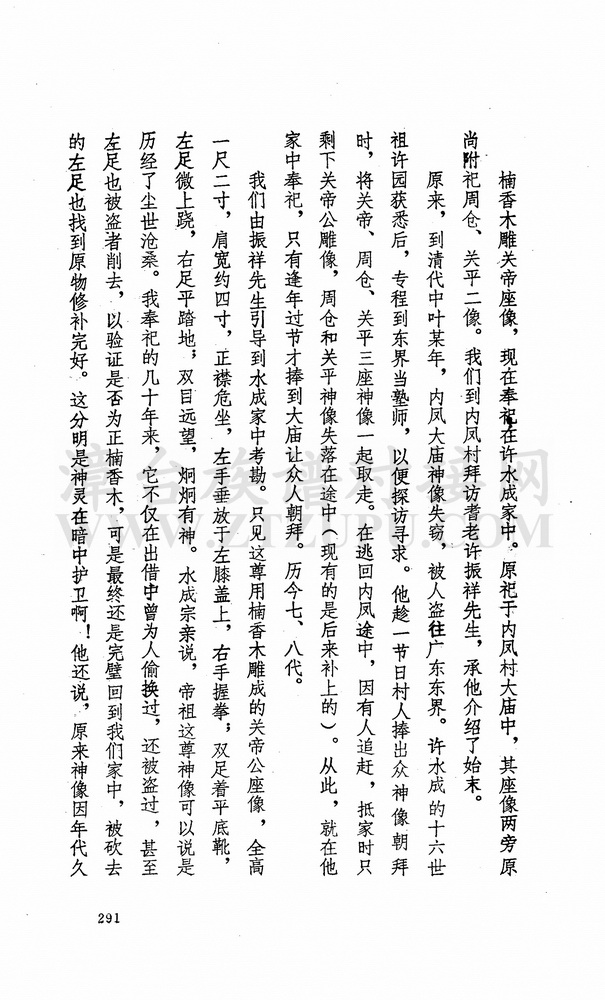 楠香木雕关帝座像，现在奉祀在许水成家中。原祀于内凤村大庙中，其座像两旁原
尚附祀周仓、关平二像。我们到内凤村拜访耆老许振祥先生，承他介绍了始末。
原来，到清代中叶某年，内凤大庙神像失窃，被人盗往广东东界。许水成的十六世
祖许园获悉后，专程到东界当塾师，以便探访寻求。他趁一节日村人捧出众神像朝拜
时，将关帝、周仓、关平三座神像一起取走。在逃回内凤途中，因有人追赶，抵家时只
剩下关帝公雕像，周仓和关平神像失落在途中（现有的是后来补上的）。从此，就在他
家中奉祀，只有逢年过节才捧到大庙让众人朝拜。历今七、八代。
我们由振祥先生引导到水成家中考勘。只见这尊用楠香木雕成的关帝公座像，全高
一尺二寸，肩宽约四寸，正襟危坐，左手垂放于左膝盖上，右手握拳；双足着平底靴，
左足微上跷，右足平踏地；双目远望，炯炯有神。水成宗亲说，帝祖这尊神像可以说是
历经了尘世沧桑。我奉祀的几十年来，它不仅在出借中曾为人偷换过，还被盗过，甚至
左足也被盗者削去，以验证是否为正楠香木，可是最终还是完璧回到我们家中，被砍去
的左足也找到原物修补完好。这分明是神灵在暗中护卫啊！他还说，原来神像因年代久
291
漳台族谱对接网
WWW.ZTZUPU.COM